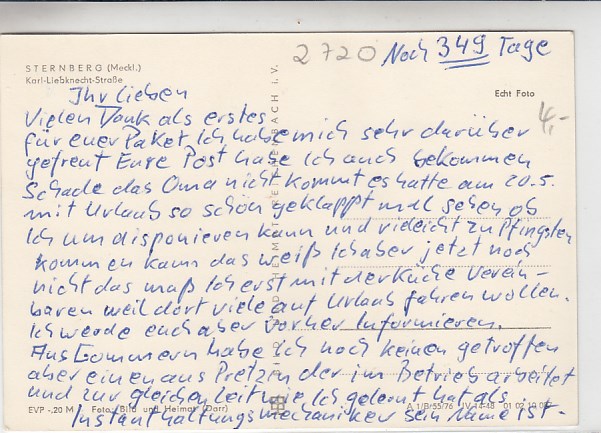 2720 Noch 349 Tage
STERNBERG (Meckl.)
Karl-Liebknecht-Straße
Echt Foto
4,-
Ihr lieben
Vielen Dank als erstes
für euer Paket Ich habe mich sehr darüber
gefreut Eure Post habe Ich auch bekommen
Schade das Oma nicht kommt es hatte am 20.5.
mit Urlaub so schön geklappt mal sehen ob
Ich um disponieren kann und vileicht zu Pfingsten
kommen kann das weiß Ich aber jetzt noch
nicht das muß Ich erst mit der Küche verein-
baren weil dort viele auf Urlaub fahren wollen.
Ich werde euch aber vorher Informieren.
Aus Gommern habe Ich noch keinen getroffen
aber einen aus Pretzien der im Betrieb arbeitet
und zur gleichen Zeit wie Ich gelernt hat als
Instanthaltungsmechaniker sein Name ist-
EVP -.20 M Foto: Bild und Heimat (Darr)
A 1/B/55/76 IV-14-48 01 02 10 05